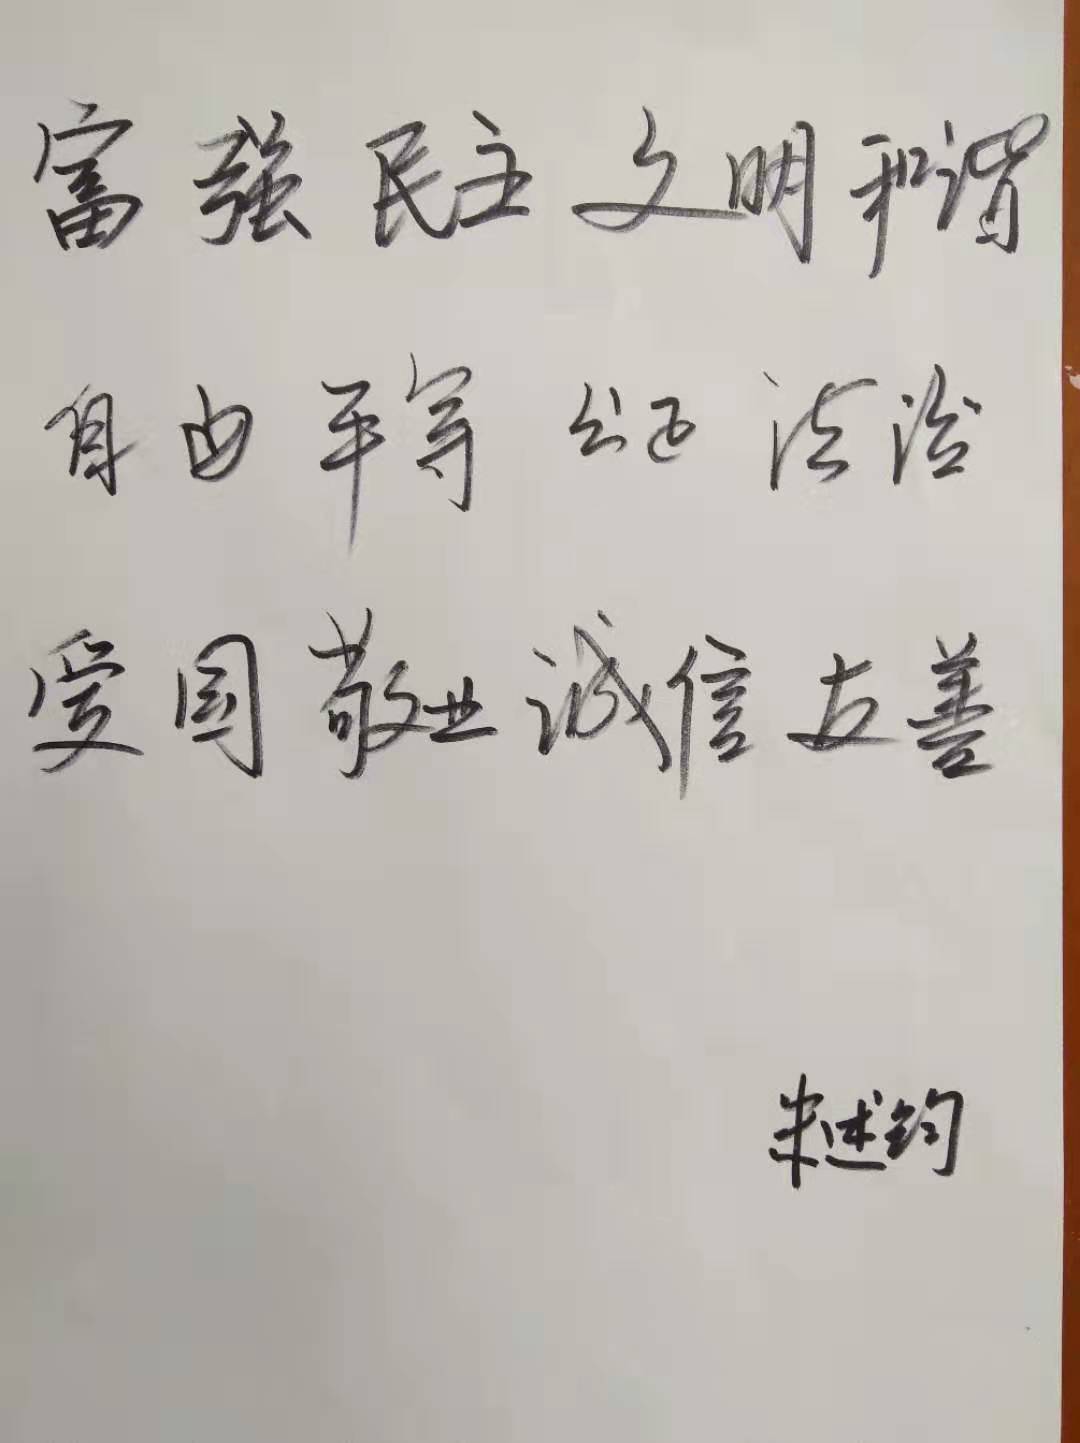 富强民主文明和谐
自由平等公正法治
爱国敬业诚信友善
朱述钧